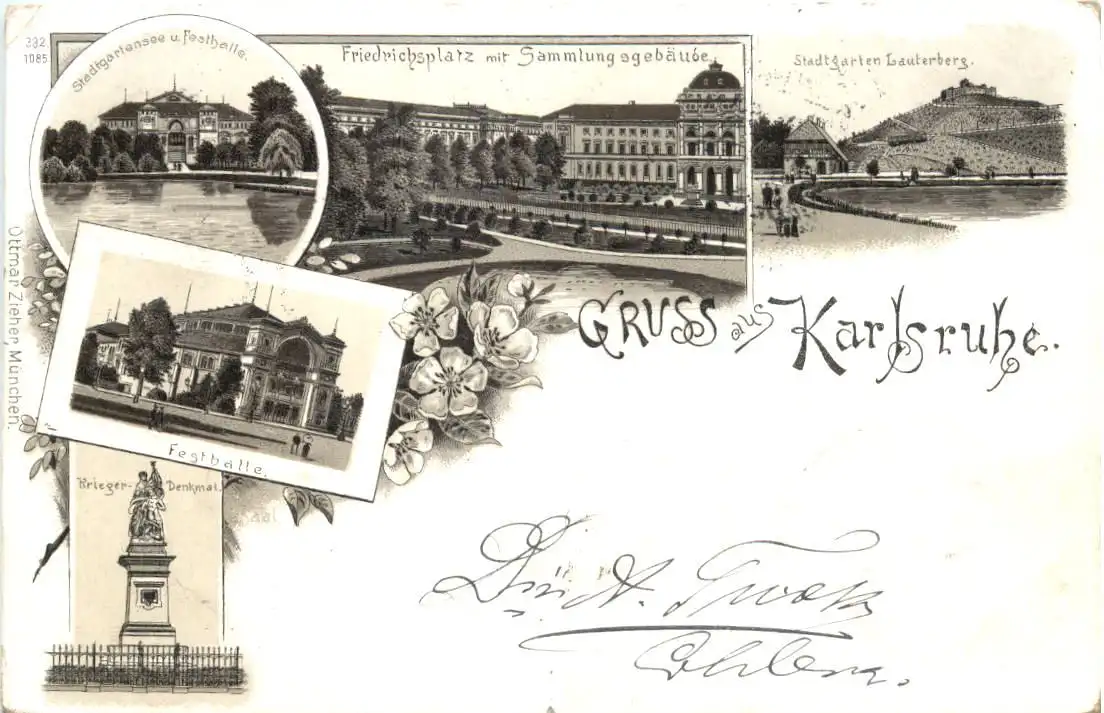 332.
1085
Stadtgartensee u. Festhalle.
Friedrichsplatz mit Sammlungsgebäude.
Stadtgarten Lauterberg.
Ottmar Zieher, München.
GRUSS aus Karlsruhe.
Festhalle.
Krieger-Denkmal.